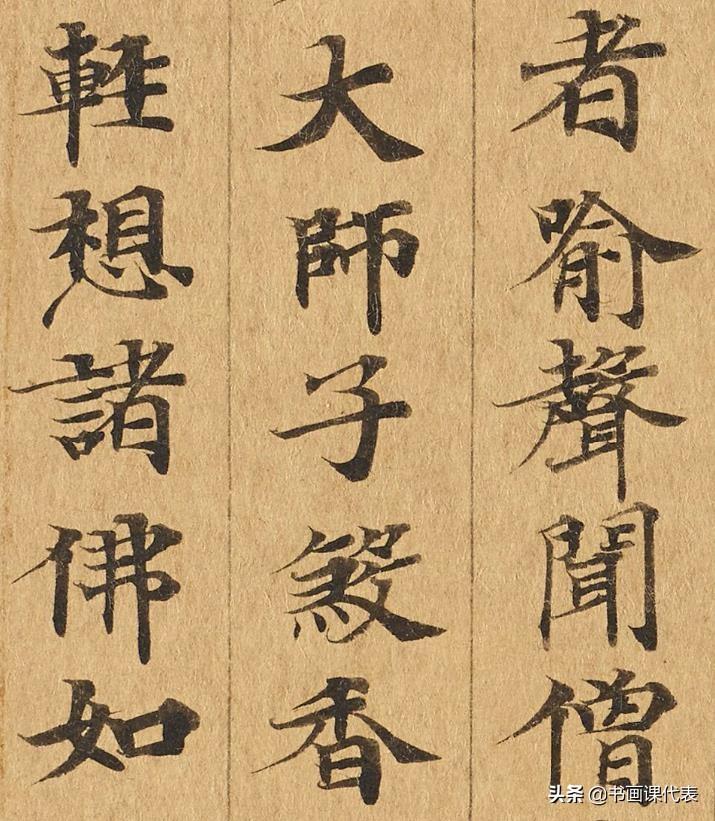 者喻聲聞僧
大師子香
輕想諸佛如
头条 @书画课代表